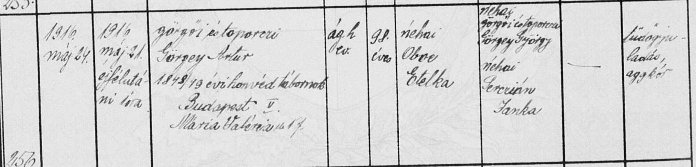 255.
1916 máj 24.
1916 máj 21. éjfélutáni óra
görgői és toporczi
Görgey Artur
1848/49 évi honvéd tábornok
Budapest V.
Mária Valéria u. 17.
ág h
ev
98. éves
néhai
Etelka
néhai
görgői és toporczi
Görgey György
néhai
Perczián
Janka
aggkór
256